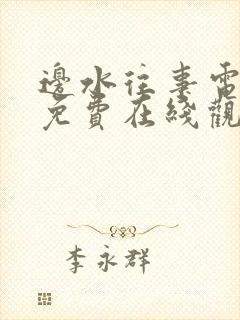 邊水往事電
免費在綫觀
李永群